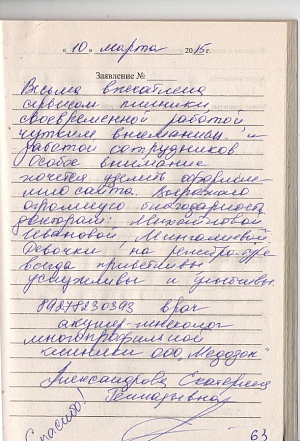 « 10 » марта 2015 г.
Заявление №
Весьма впечатлена
сервисом клиники
своевременной работой
чутким вниманием и
работой сотрудников
Особое внимание
хочется уделить оформле-
нию сайта. Выражаю
огромную благодарность
докторам: Михайловой
Ивановой, Мингалиевой
Девочки на
всегда приветливы
услужливы и учтивы.
89278230393 врач
акушер-гинеколог
многопрофильной
клиники ООО „Медозон"
Александрова Екатерина
Геннадьевна
Спасибо!
63